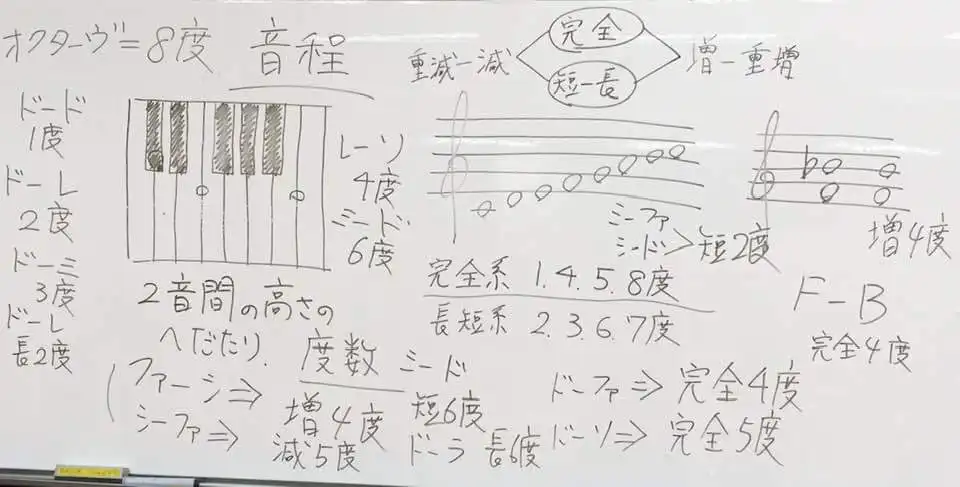 オクターヴ=8度
音程
重減ー減
完全
短ー長
増ー重増
ドード
1度
ドーレ
2度
ドーミ
3度
ドーレ
長2度
レーソ
4度
ミード
6度
ミーファ
シード>短2度
増4度
2音間の高さの
へだたり.
度数
完全系 1.4.5.8度
長短系 2.3.6.7度
F-B
完全4度
ファーシ⇒
増4度
シーファ⇒
減5度
ミード
短6度
ドーラ 長6度
ドーファ⇒完全4度
ドーソ⇒完全5度